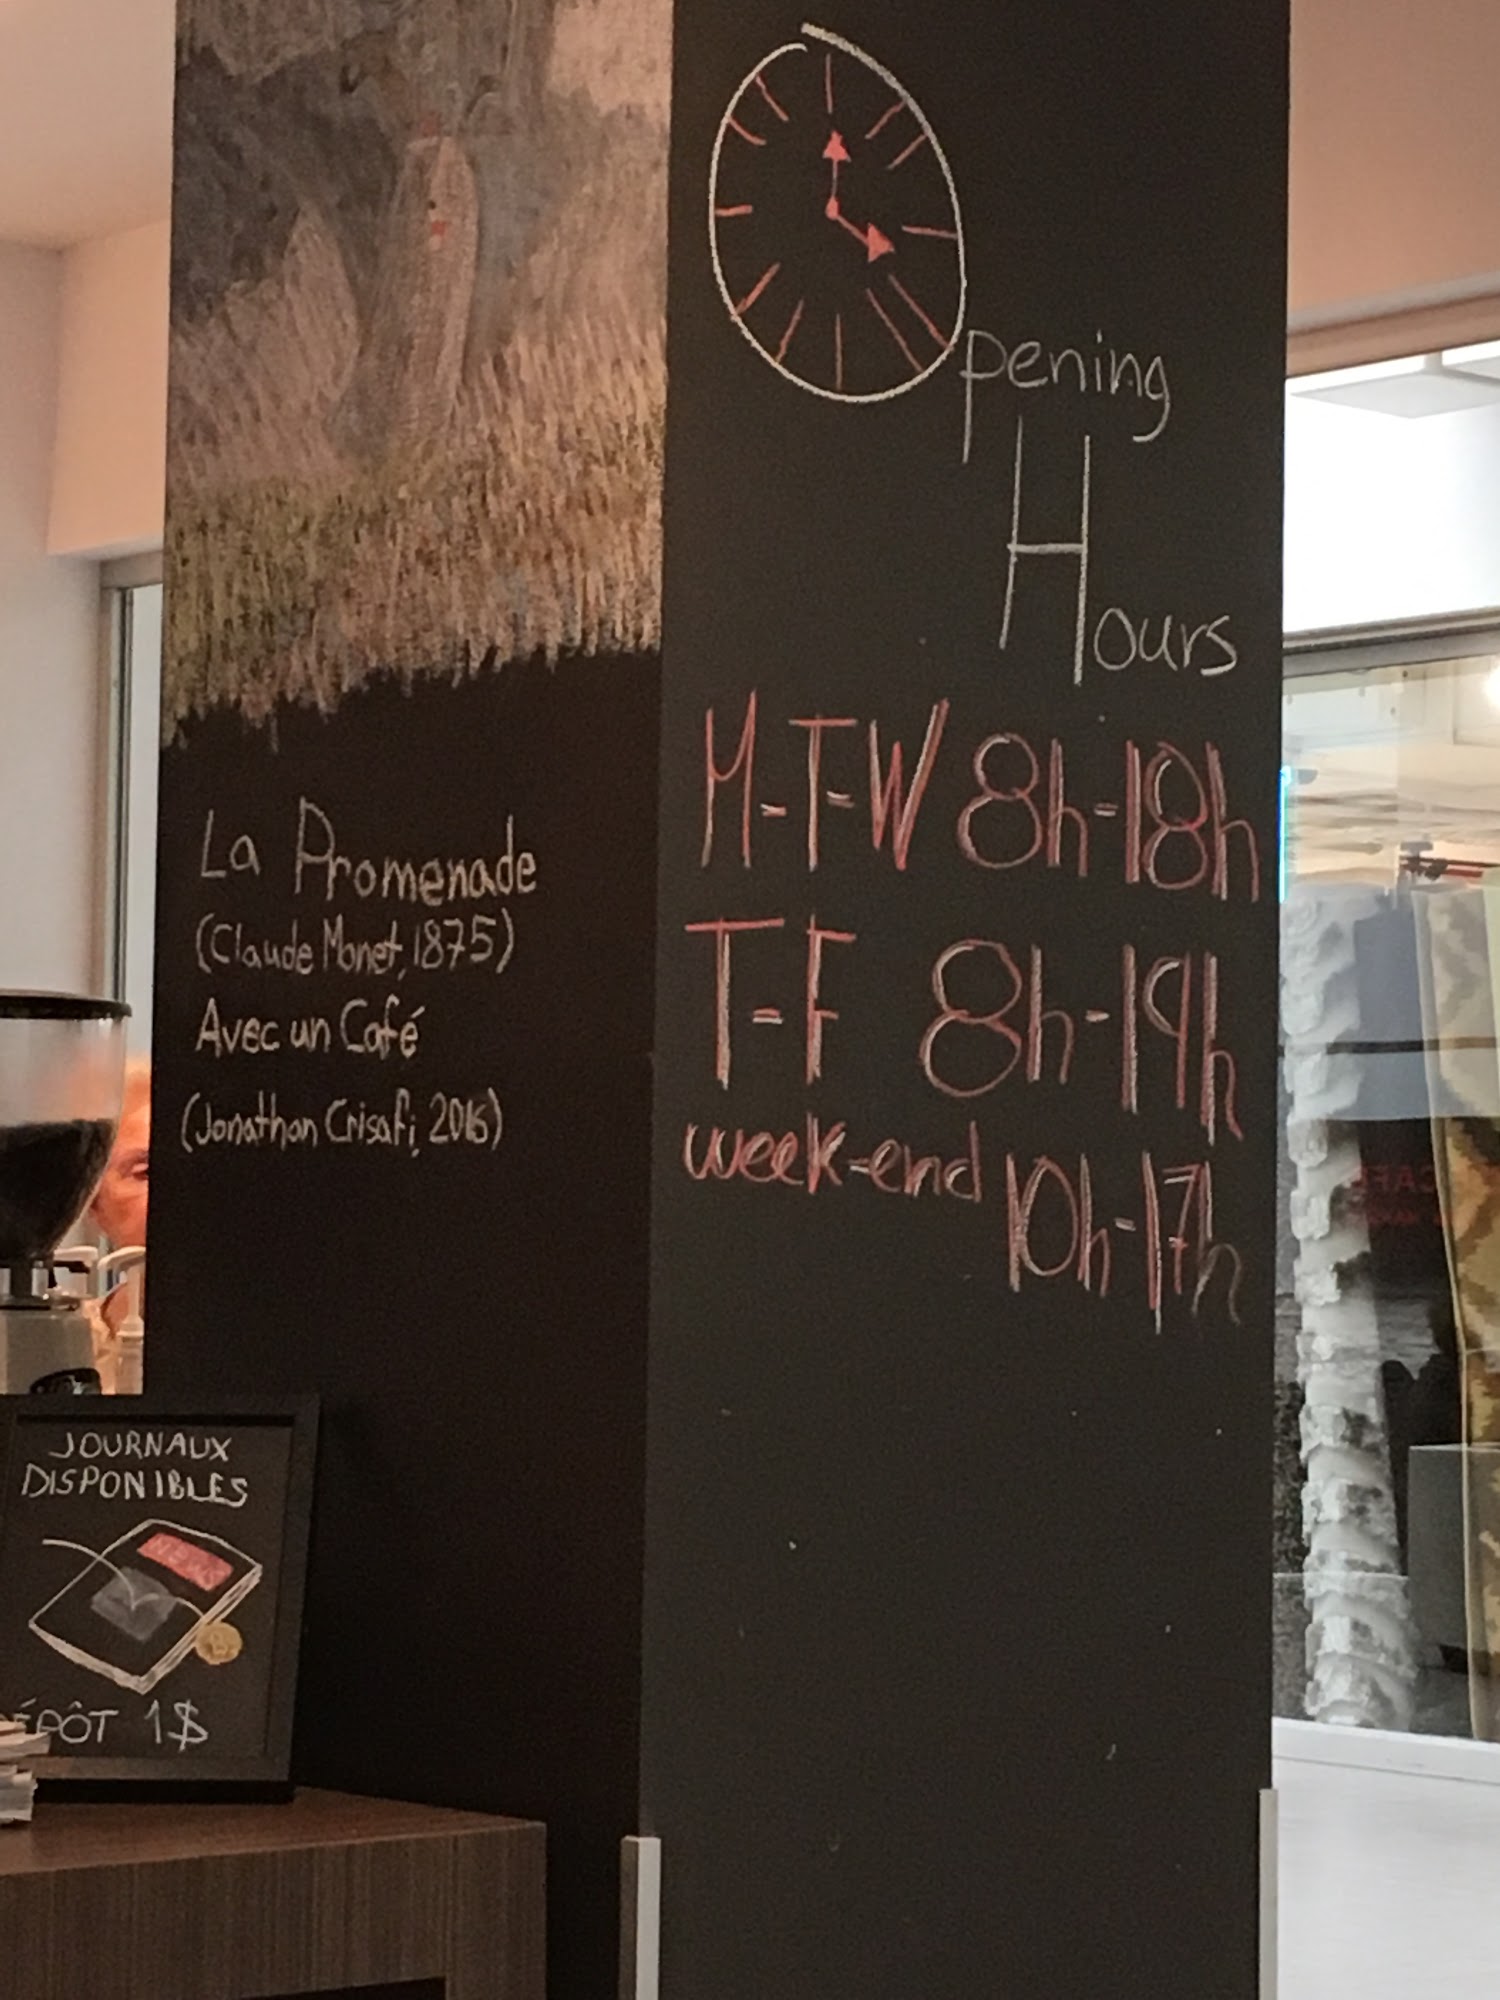 Opening
Hours
M-T-W 8h-18h
T-F 8h-19h
week-end 10h-17h
La Promenade
(Claude Monet, 1875)
Avec un Café
(Jonathan Crisafi, 2016)
JOURNAUX
DISPONIBLES
NEWS
DÉPÔT 1$